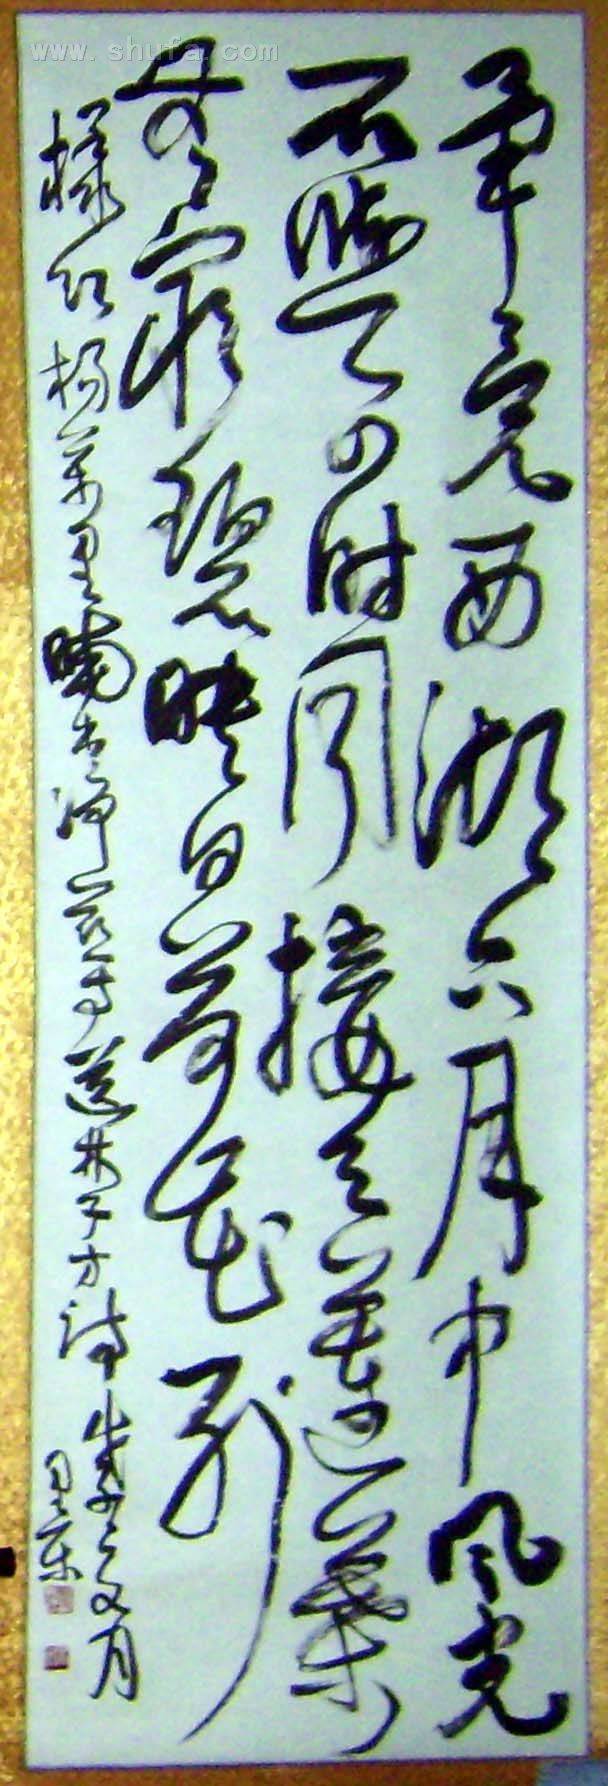 毕竟西湖六月中风光
不与四时同接天莲叶
无穷碧映日荷花别
样红杨万里晓出净慈寺送林子方诗
www.shufa.com